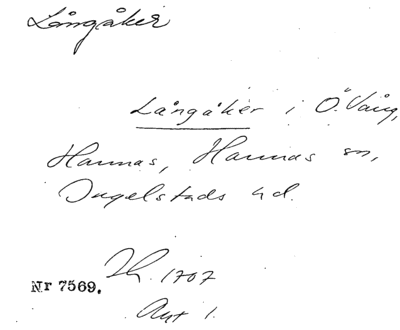 Långåker
Långåker i Ö. Vång,
Hannas, Hannas sn,
Ingelstads hd.
Nr 7569.
Lh. 1707
Akt 1.